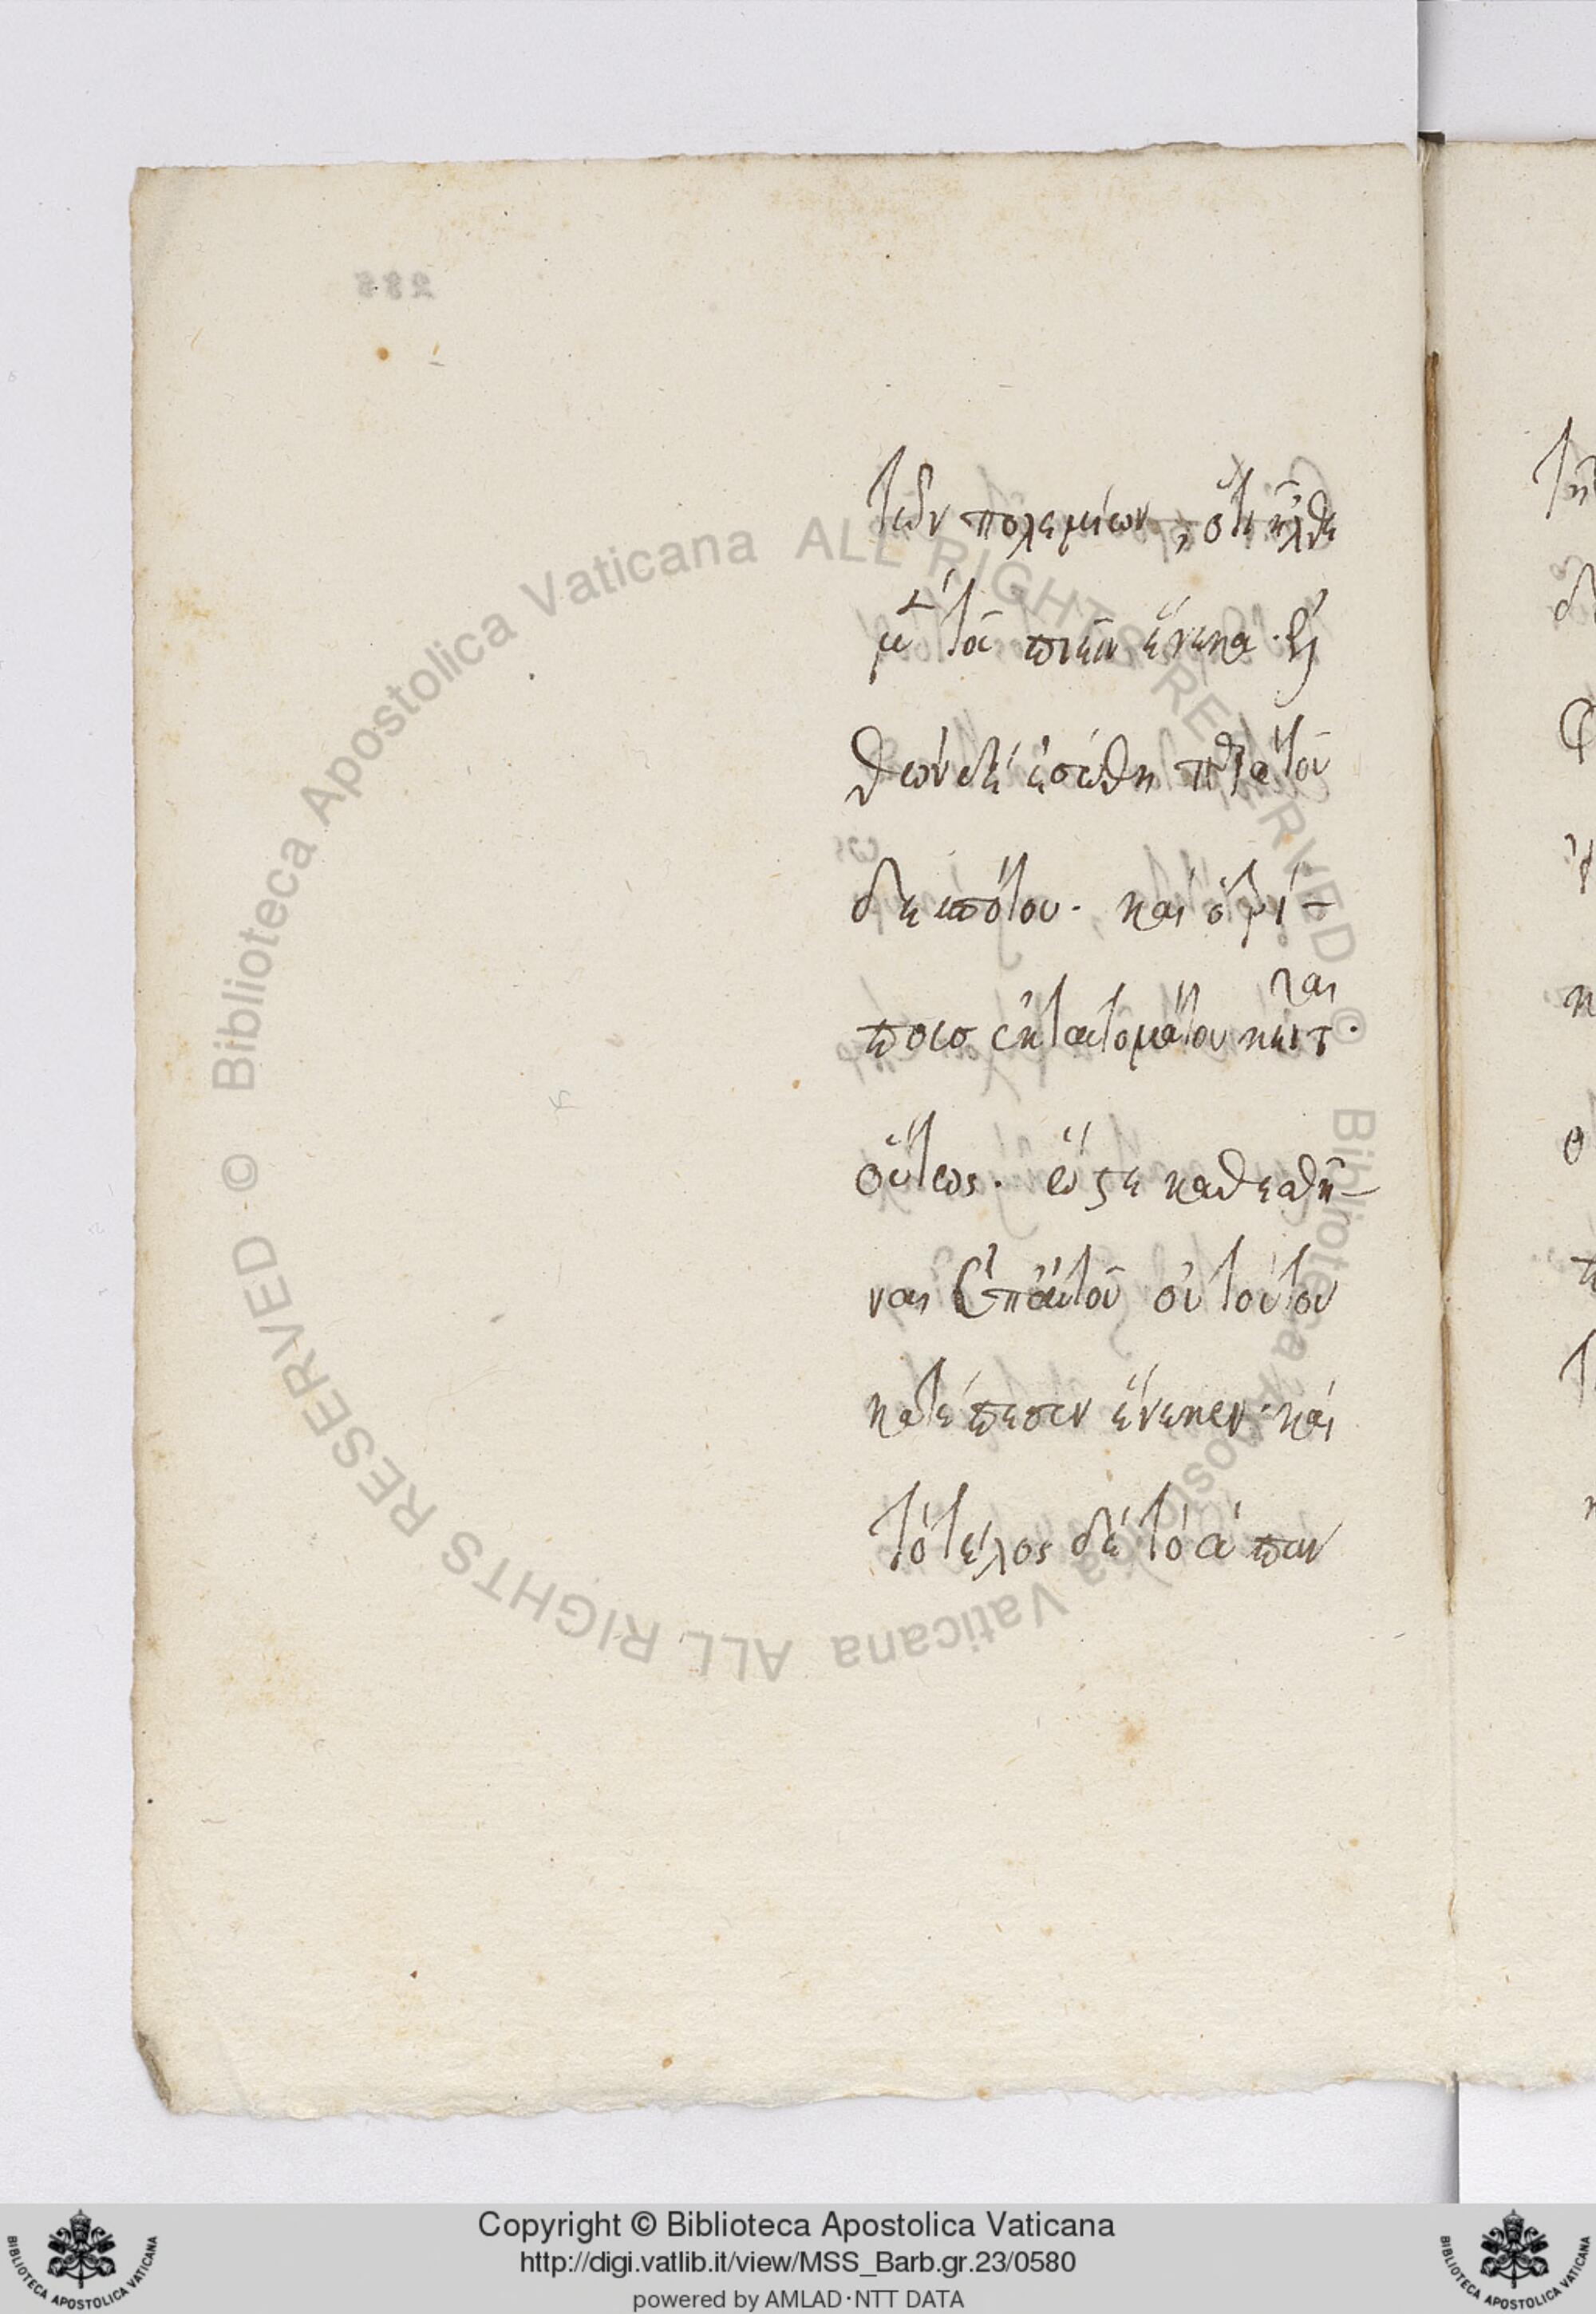 τῶν πολεμίων, ὅτι ἦλθε
μ τὰ πιεῖν ἕνεκα.
θεὸν δὲ ἐσώθη τοῦ
δεσπότου. καὶ ὁ ἵπ-
ποισ ἐκ ταυτομάτου κειτ ται
οὕτως. ὥστε καθεσθῆ-
ναι ἐπαὐτοῦ οὐ τούτου
κατέπεσεν ἕνεκεν. καὶ
τὸ τέλος δὲ τὸ ἅπαν
286
Biblioteca Apostolica Vaticana ALL RIGHTS RESERVED ©
Biblioteca Apostolica Vaticana ALL RIGHTS RESERVED ©
Copyright © Biblioteca Apostolica Vaticana
http://digi.vatlib.it/view/MSS_Barb.gr.23/0580
powered by AMLAD·NTT DATA
BIBLIOTECA APOSTOLICA VATICANA
BIBLIOTECA APOSTOLICA VATICANA